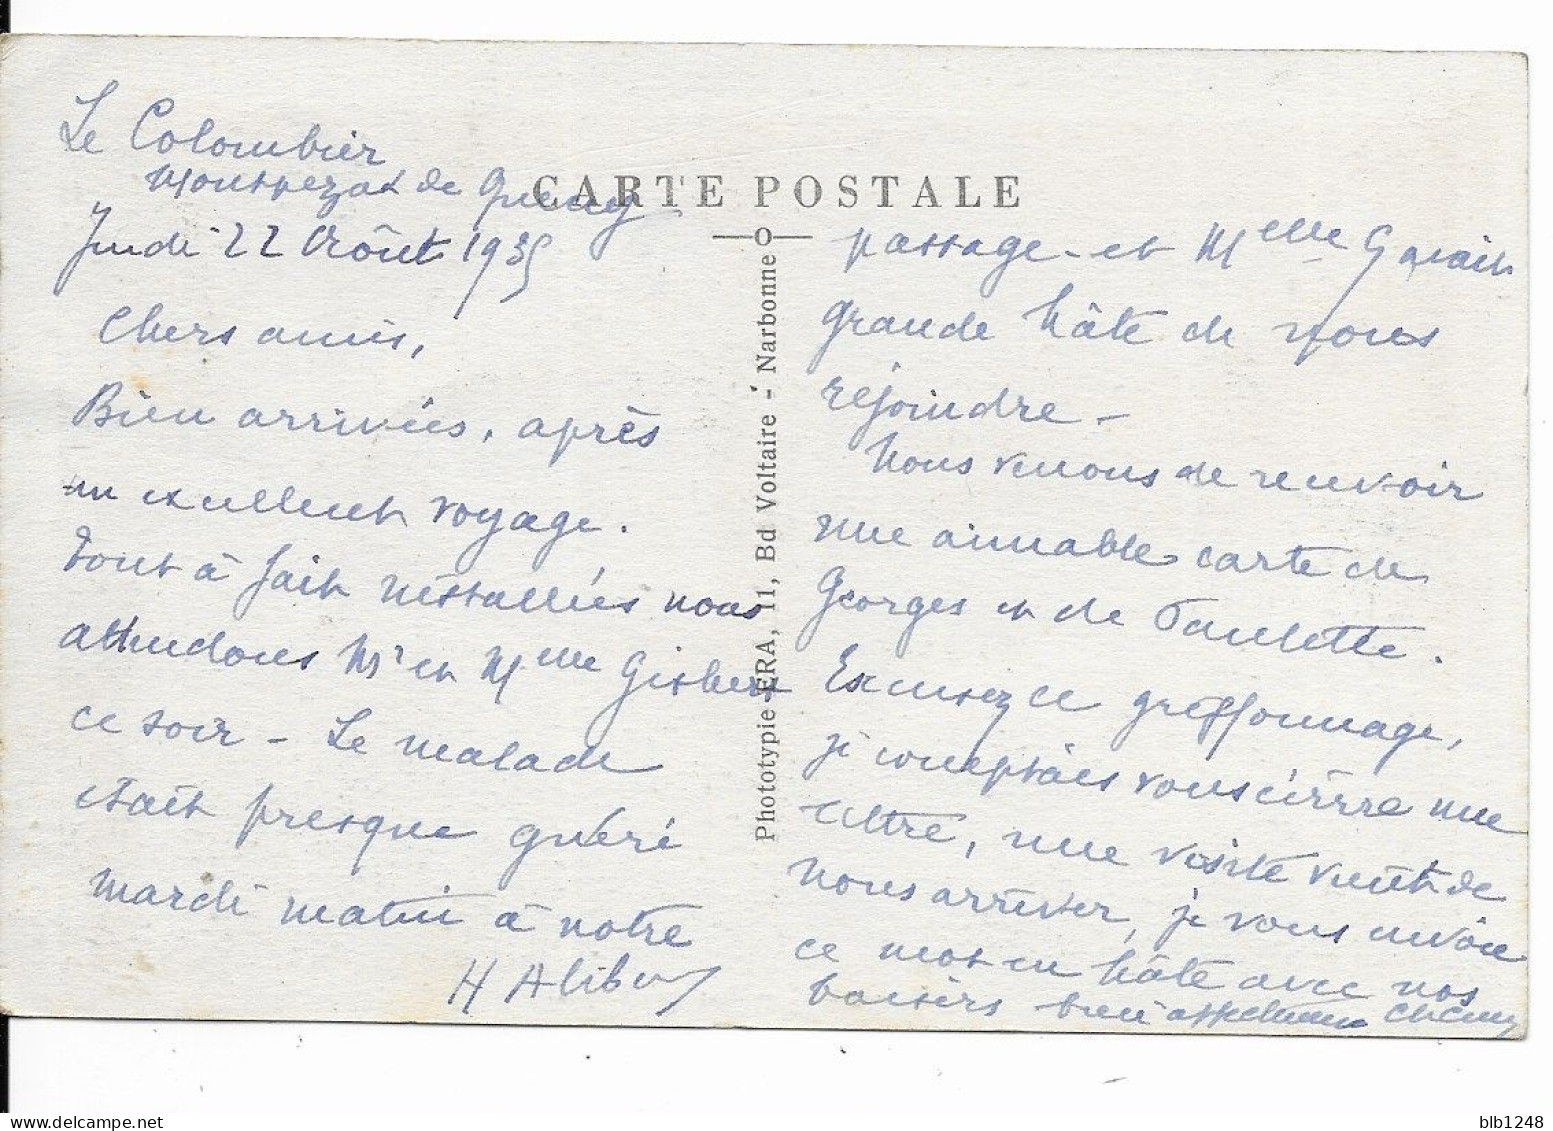 Le Colombier
Montpezat de Quercy
CARTE POSTALE
Jeudi 22 Août 1935
Chers amis,
Bien arrivées, après
un excellent voyage.
Tout à fait installées nous
attendons Mr et Mme Gisbert
ce soir - Le malade
était presque guéri
mardi matin à notre
H Alibert
Phototypie ERA, 11, Bd Voltaire - Narbonne
passage - et Melle G avait
grande hâte de nous
rejoindre -
Nous venons de recevoir
une aimable carte de
Georges et de Paulette.
Excusez ce griffonnage,
je comptais vous écrire une
lettre, une visite vient de
nous arriver, je vous envoie
ce mot en hâte avec nos
baisers bien affectueux
blb1248